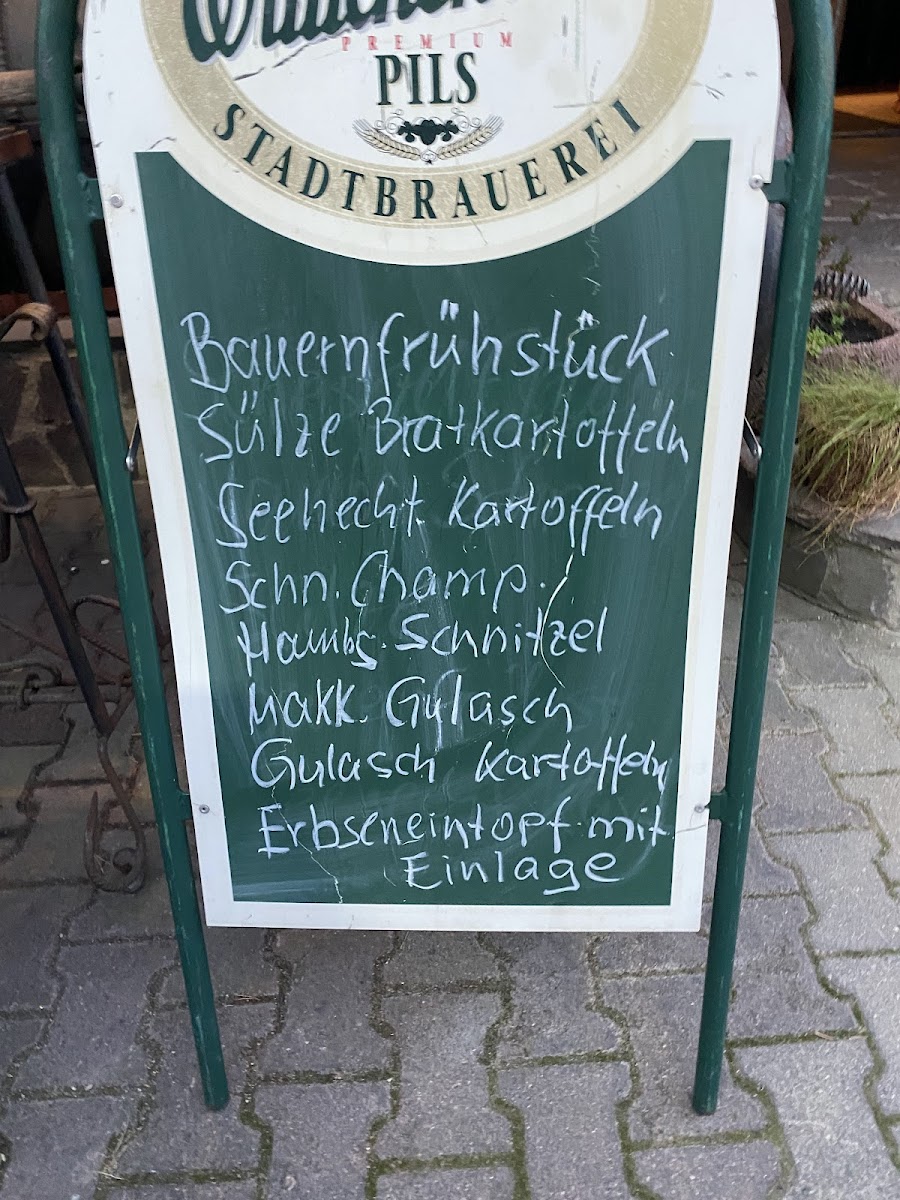 PREMIUM
PILS
STADTBRAUEREI
Bauernfrühstück
Sülze Bratkartoffeln
Seehecht Kartoffeln
Schn. Champ.
Hambg. Schnitzel
Makk. Gulasch
Gulasch Kartoffeln
Erbseneintopf mit
Einlage